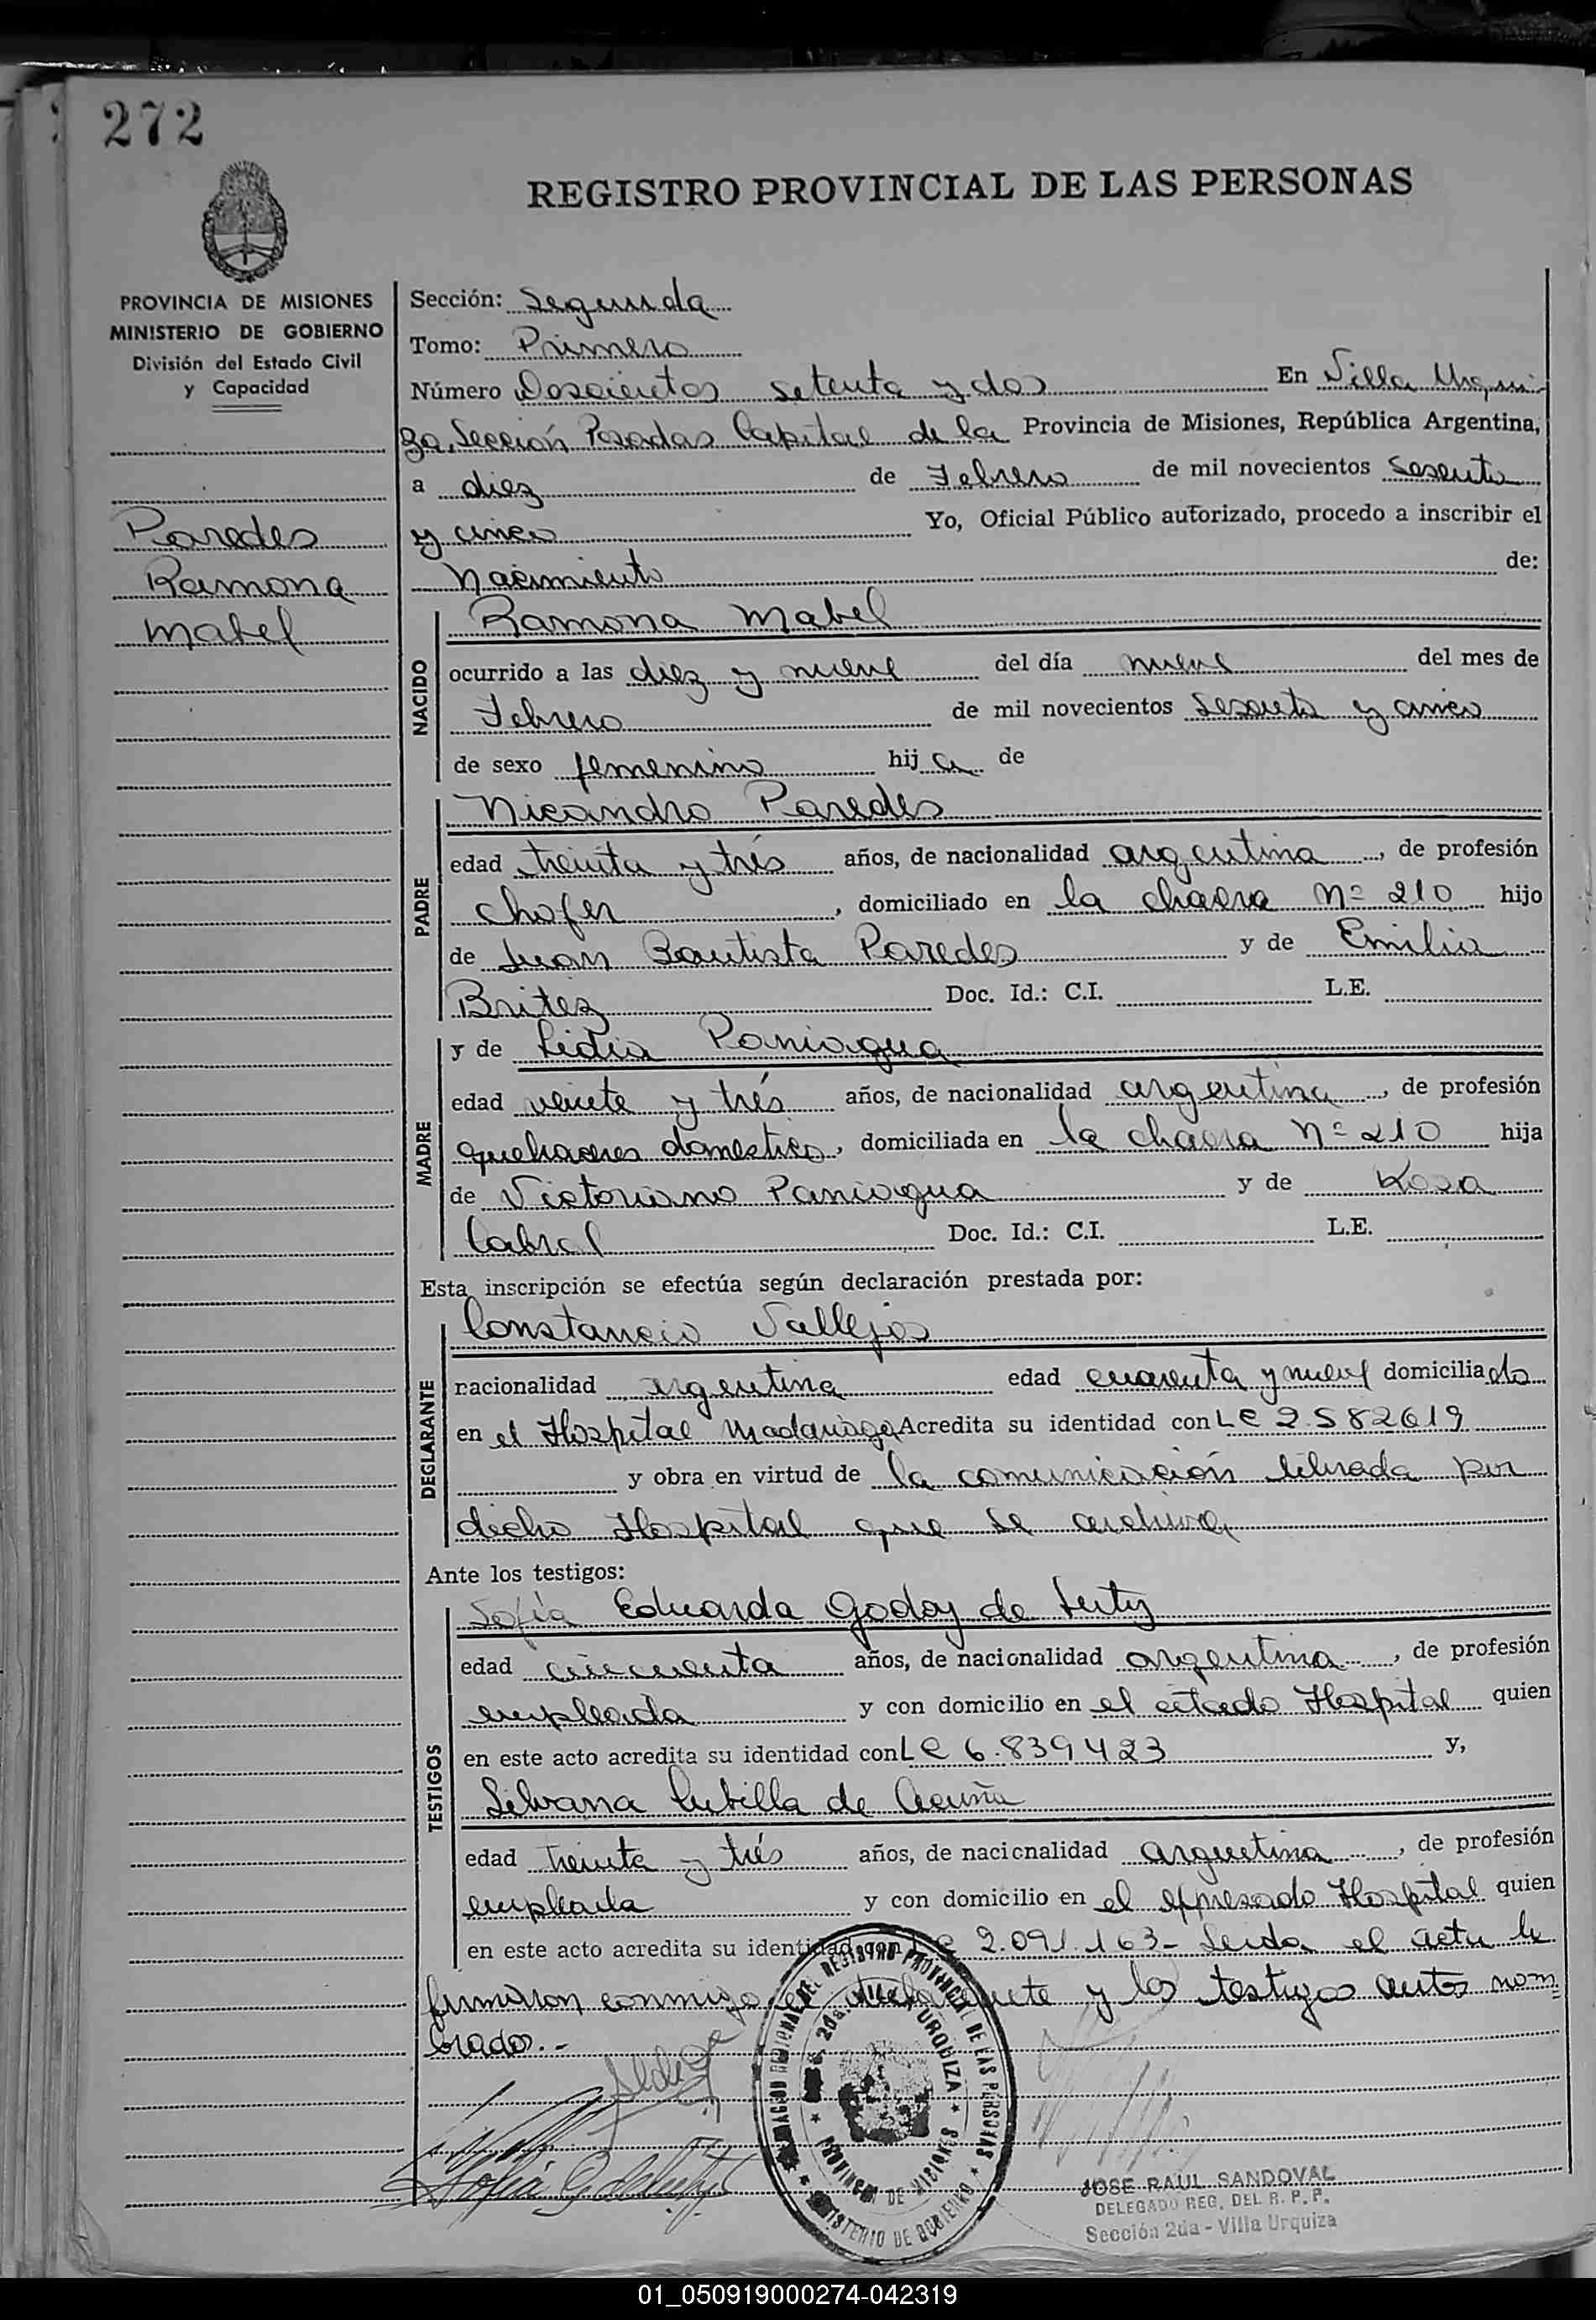 272
REGISTRO PROVINCIAL DE LAS PERSONAS
PROVINCIA DE MISIONES
MINISTERIO DE GOBIERNO
División del Estado Civil
y Capacidad
Paredes
Ramona
Mabel
Sección: Segunda
Tomo: Primero
Número Doscientos setenta y dos En Villa Urqui-
za, Sección Posadas Capital de la Provincia de Misiones, República Argentina,
a diez de Febrero de mil novecientos Sesenta
y cinco Yo, Oficial Público autorizado, procedo a inscribir el
Nacimiento de:
NACIDO
Ramona Mabel
ocurrido a las diez y nueve del día nueve del mes de
Febrero de mil novecientos Sesenta y cinco
de sexo femenino hija de
PADRE
Nicandro Paredes
edad treinta y trés años, de nacionalidad argentina, de profesión
chofer, domiciliado en la chacra Nº 210 hijo
de Juan Bautista Paredes y de Emilia
Britez Doc. Id.: C.I. L.E.
MADRE
y de Lidia Paniagua
edad veinte y trés años, de nacionalidad argentina, de profesión
quehaceres domestico, domiciliada en la chacra Nº 210 hija
de Victoriano Paniagua y de Rosa
Cabral Doc. Id.: C.I. L.E.
Esta inscripción se efectúa según declaración prestada por:
DECLARANTE
Constancio Vallejos
nacionalidad argentina edad cuarenta y nueve domiciliado
en el Hospital Madariaga Acredita su identidad con L e 2.582619
y obra en virtud de la comunicación librada por
dicho Hospital que se archiva
Ante los testigos:
TESTIGOS
Sofía Eduarda Godoy de
edad cincuenta años, de nacionalidad argentina, de profesión
empleada y con domicilio en el citado Hospital quien
en este acto acredita su identidad con L e 6.839423 y,
Silvana Cubilla de Acuña
edad treinta y trés años, de nacionalidad argentina, de profesión
empleada y con domicilio en el expresado Hospital quien
en este acto acredita su identidad con L e 2.091.163- Leida el acta le
firmaron conmigo, el declarante y los testigos antes nom
brados.-
REGISTRO PROVINCIAL DE LAS PERSONAS
URQUIZA
PROVINCIA DE MISIONES
MINISTERIO DE GOBIERNO
JOSE RAUL SANDOVAL
DELEGADO REG. DEL R. P. P.
Sección 2da - Villa Urquiza
01_050919000274-042319